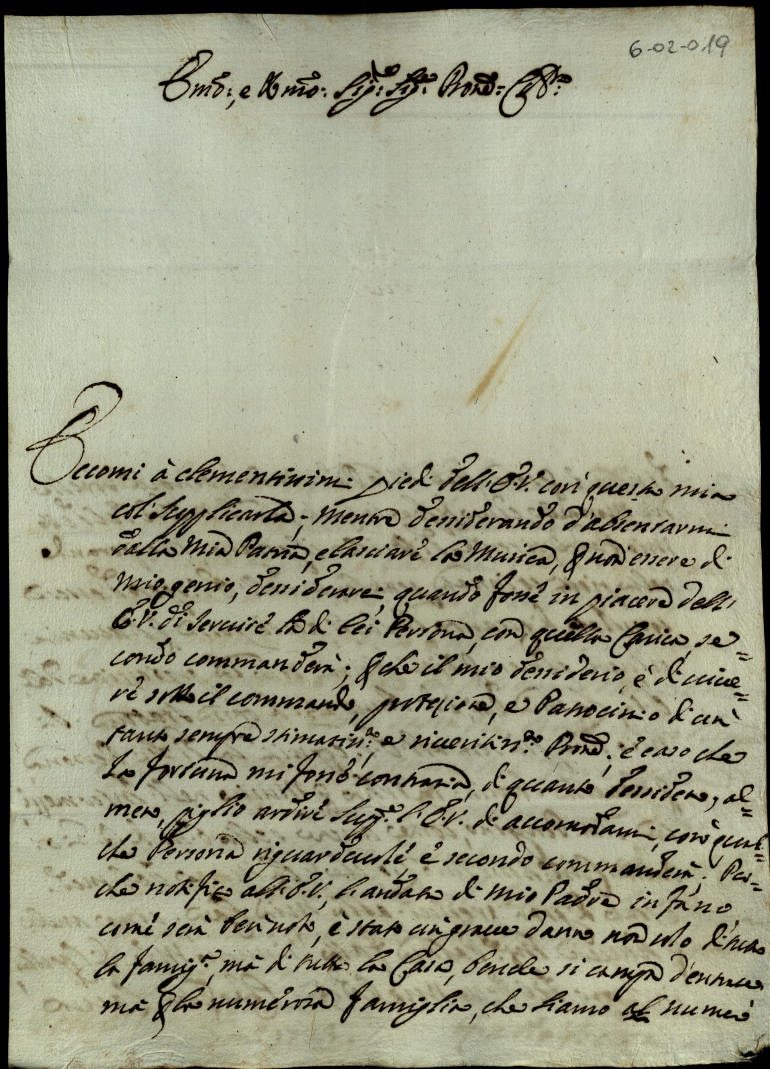 6-02-019
Emo:, e Rmo: Sig: Sig: Pron: Col:mo
Eccomi à clementissimi piedi dell'E.V. con questa mia
col supplicarla, mentre dessiderando d'absentarmi
dalla mia Patria, e lasciare la Musica, p non essere di
mio genio, dessiderarei, quando fosse in piacere dell'
E.V. di servire la di lei Persona, con quella Carica, se=
condo commanderà; p che il mio dessiderio, è di vive=
re sotto il commando, protezione, e Patrocinio di un
tanto sempre stimatis:o e riveritis:o Pron; è caso che
la fortuna mi fosse contraria, di quanto dessidero, al=
meno, piglio ardire supp:e l'E.V. di accomodarmi, con qual=
che Persona riguardevole, e secondo commanderà; Per=
che notifico all'E.V., l'andata di mio Padre in Fano
come sarà ben noto, è stato un grave danno non solo di tutta
la famig:a, mà di tutta la Casa, bensì si campa d'entrate
mà p la numerosa famiglia, che siamo al numero